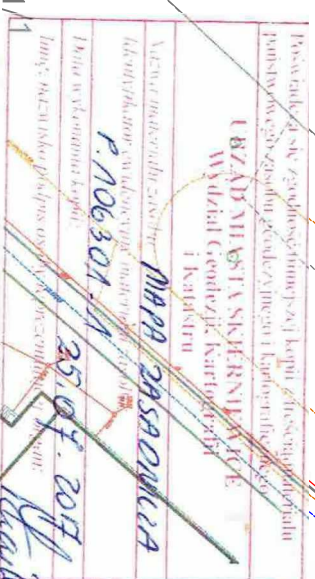 Poświadcza się zgodność niniejszej kopii z treścią materiału
Państwowego zasobu geodezyjnego i kartograficznego
URZĄD MIASTA SKIERNIEWICE
Wydział Geodezji, Kartografii
i Katastru
Nazwa materiału zasobu MAPA ZASADNICZA
Identyfikator ewidencyjny materiału
P.1063.01-1
Data wykonania kopii 25.07.2017
Imię, nazwisko i podpis osoby reprezentującej organ
1